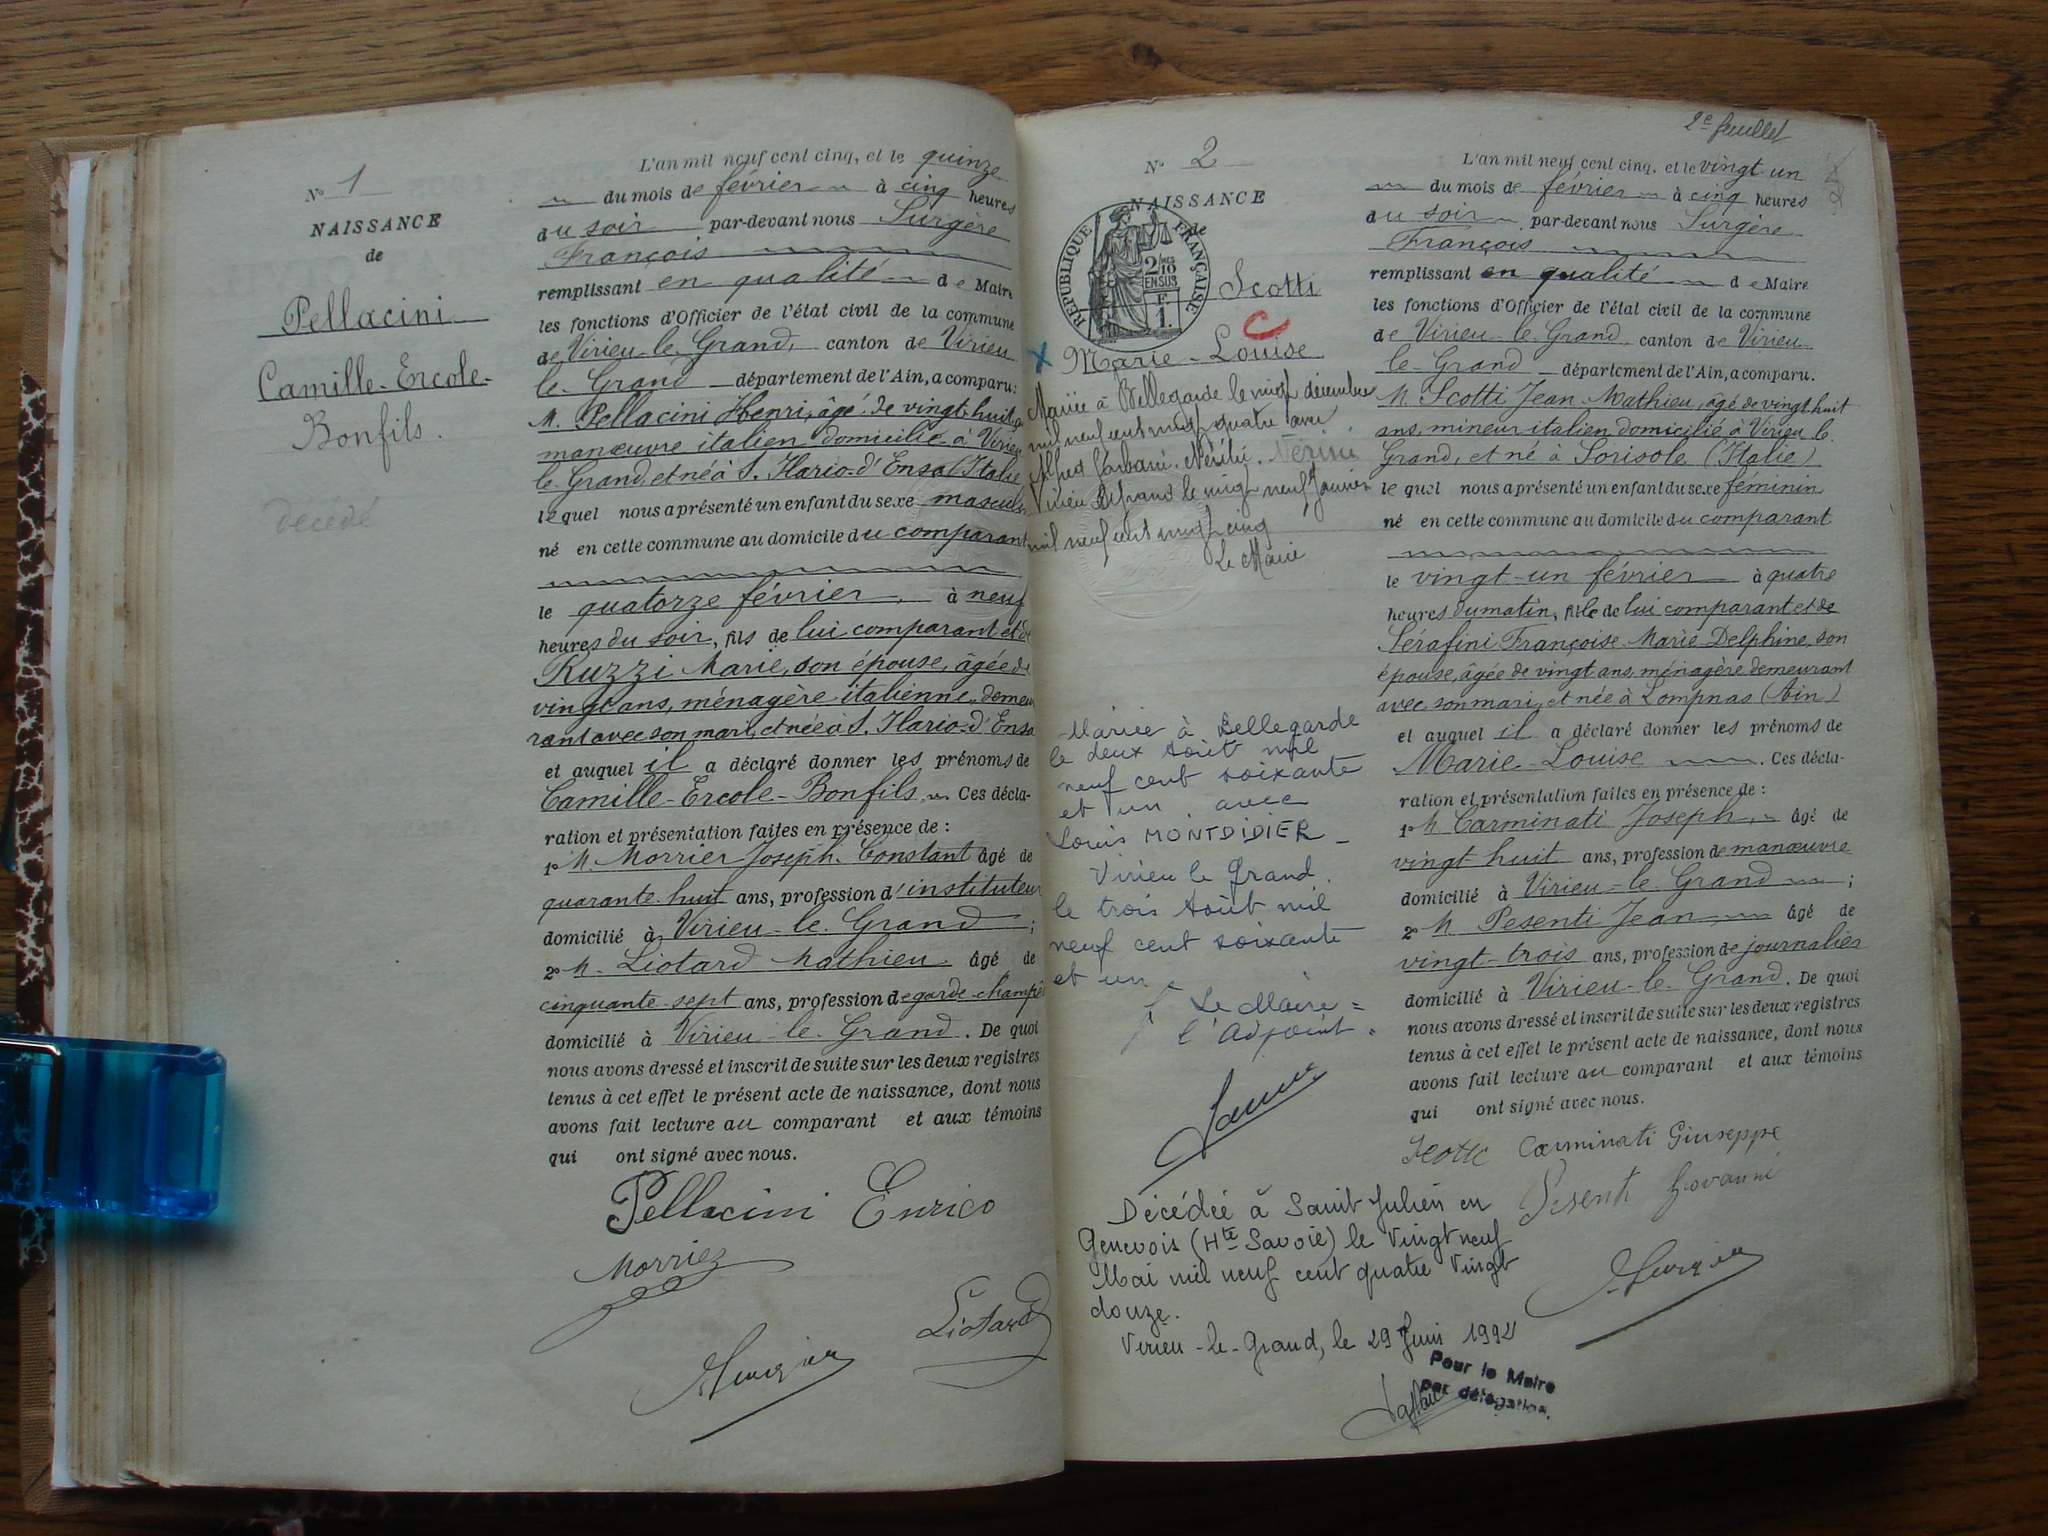 N° 1
NAISSANCE
de
Pellacini
Camille-Ercole-
Bonfils.
décédé
L'an mil neuf cent cinq, et le quinze
du mois de février à cinq heures
du soir par-devant nous Surgère
François
remplissant en qualité de Maire
les fonctions d'Officier de l'état civil de la commune
de Virieu-le-Grand, canton de Virieu
le-Grand département de l'Ain, a comparu:
M. Pellacini Henri, âgé de vingt-huit
manœuvre italien domicilié à Virieu
le-Grand, et né à S. Ilario-d'Enza (Italie
lequel nous a présenté un enfant du sexe masculin
né en cette commune au domicile du comparant
le quatorze février à neuf
heures du soir, fils de lui comparant et de
Ruzzi Marie, son épouse, âgée de
vingt ans, ménagère italienne demeu
rant avec son mari, et née à S. Ilario-d'Enza
et auquel il a déclaré donner les prénoms de
Camille-Ercole-Bonfils. Ces décla-
ration et présentation faites en présence de :
1° M. Morrier Joseph Constant âgé de
quarante-huit ans, profession d'instituteur
domicilié à Virieu-le-Grand ;
2° M. Liotard Mathieu âgé de
cinquante-sept ans, profession de garde-champê
domicilié à Virieu-le-Grand. De quoi
nous avons dressé et inscrit de suite sur les deux registres
tenus à cet effet le présent acte de naissance, dont nous
avons fait lecture au comparant et aux témoins
qui ont signé avec nous.
Pellacini Enrico
Morriez
Liotard
2e feuillet
N° 2
NAISSANCE
de
RÉPUBLIQUE FRANÇAISE
2/10
EN SUS
F.
1.
Scotti
Marie-Louise
Mariée à Bellegarde le vingt décembre
mil neuf cent vingt quatre avec
Alfred
Virieu le Grand le vingt neuf Janvier
mil neuf cent vingt cinq
Le Maire
Mariée à Bellegarde
le deux Août mil
neuf cent soixante
et un avec
Louis MONTDIDIER
Virieu le Grand
le trois Août mil
neuf cent soixante
et un
Le Maire
l'Adjoint
Décédée à Saint Julien en
Genevois (Hte Savoie) le Vingt neuf
Mai mil neuf cent quatre Vingt
douze.
Virieu-le-Grand, le 29 Juin 1992
Pour le Maire
par délégation.
L'an mil neuf cent cinq, et le vingt un
du mois de février à cinq heures
du soir par-devant nous Surgère
François
remplissant en qualité de Maire
les fonctions d'Officier de l'état civil de la commune
de Virieu-le-Grand canton de Virieu
le-Grand département de l'Ain, a comparu.
M. Scotti Jean-Mathieu, âgé de vingt huit
ans, mineur italien domicilié à Virieu le
Grand, et né à Sorisole (Italie)
lequel nous a présenté un enfant du sexe féminin
né en cette commune au domicile du comparant
le vingt-un février à quatre
heures du matin, fille de lui comparant et de
Sérafini Françoise Marie Delphine, son
épouse, âgée de vingt ans, ménagère demeurant
avec son mari, et née à Lompnas (Ain)
et auquel il a déclaré donner les prénoms de
Marie-Louise. Ces décla-
ration et présentation faites en présence de :
1° M Carminati Joseph, âgé de
vingt huit ans, profession de manœuvre
domicilié à Virieu-le-Grand ;
2° M Pesenti Jean, âgé de
vingt-trois ans, profession de journalier
domicilié à Virieu-le-Grand. De quoi
nous avons dressé et inscrit de suite sur les deux registres
tenus à cet effet le présent acte de naissance, dont nous
avons fait lecture au comparant et aux témoins
qui ont signé avec nous.
Scotti Carminati Giuseppe
Pesenti Giovanni